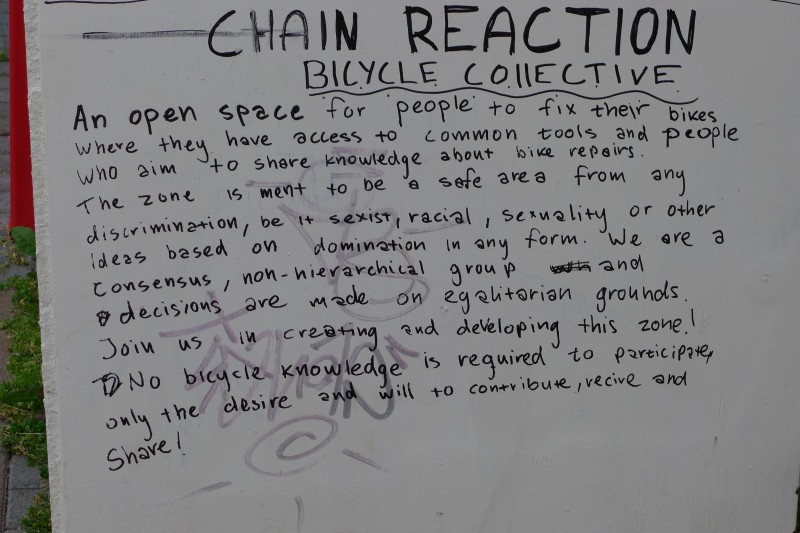 CHAIN REACTION
BICYCLE COLLECTIVE
An open space for people to fix their bikes
where they have access to common tools and people
who aim to share knowledge about bike repairs.
The zone is ment to be a safe area from any
discrimination, be it sexist, racial, sexuality or other
ideas based on domination in any form. We are a
consensus, non-hierarchical group and
decisions are made on egalitarian grounds.
Join us in creating and developing this zone!
No bicycle knowledge is required to participate,
only the desire and will to contribute, recive and
Share!